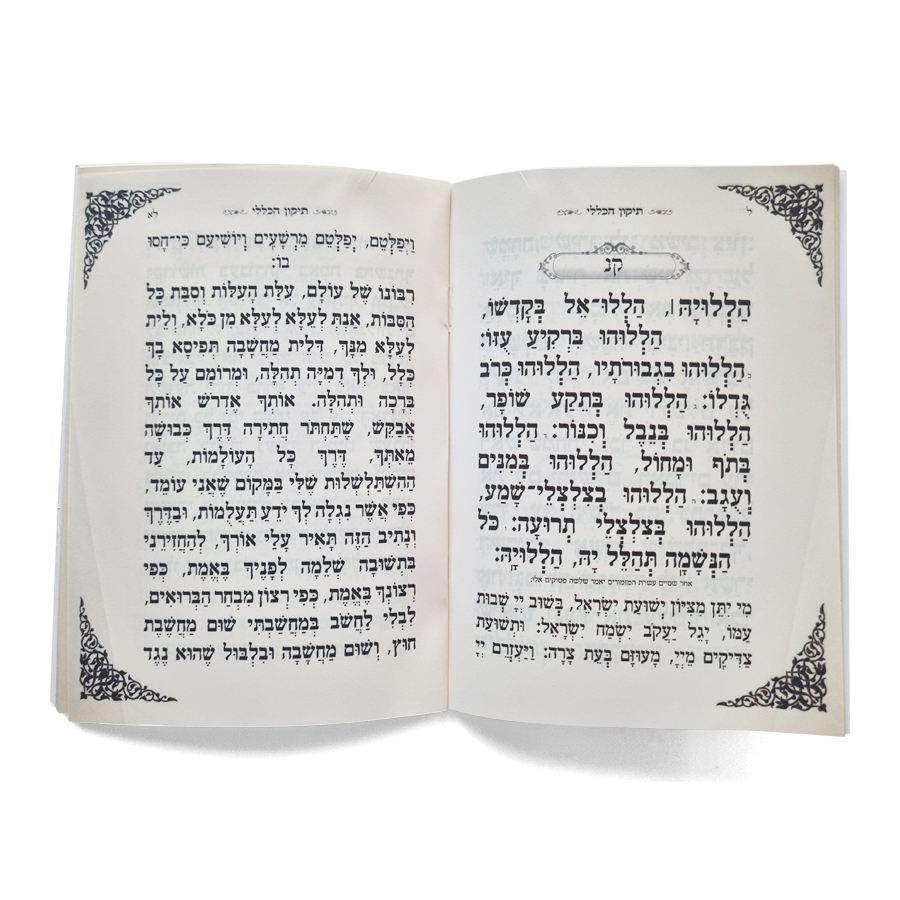 ל תיקון הכללי
קנ
הַלְלוּיָהּ|, הַלְלוּ־אֵל בְּקָדְשׁוֹ,
הַלְלוּהוּ בִּרְקִיעַ עֻזּוֹ:
ב הַלְלוּהוּ בִגְבוּרֹתָיו, הַלְלוּהוּ כְּרֹב
גֻּדְלוֹ: ג הַלְלוּהוּ בְּתֵקַע שׁוֹפָר,
הַלְלוּהוּ בְּנֵבֶל וְכִנּוֹר: ד הַלְלוּהוּ
בְּתֹף וּמָחוֹל, הַלְלוּהוּ בְּמִנִּים
וְעֻגָב: ה הַלְלוּהוּ בְצִלְצְלֵי־שָׁמַע,
הַלְלוּהוּ בְּצִלְצְלֵי תְרוּעָה: ו כֹּל
הַנְּשָׁמָה תְּהַלֵּל יָהּ, הַלְלוּיָהּ:
אחר שסיים עשרת המזמורים יאמר שלשה פסוקים אלו:
מִי יִתֵּן מִצִיּוֹן יְשׁוּעַת יִשְׂרָאֵל, בְּשׁוּב יְיָ שְׁבוּת
עַמּוֹ, יָגֵל יַעֲקֹב יִשְׂמַח יִשְׂרָאֵל: וּתְשׁוּעַת
צַדִּיקִים מֵיְיָ, מָעוּזָּם בְּעֵת צָרָה: וַיַּעְזְרֵם יְיָ
תיקון הכללי לא
וַיְפַלְּטֵם, יְפַלְּטֵם מֵרְשָׁעִים וְיוֹשִׁיעֵם כִּי־חָסוּ
בוֹ:
רִבּוֹנוֹ שֶׁל עוֹלָם, עִלַּת הָעִלּוֹת וְסִבַּת כָּל
הַסִּבּוֹת, אַנְתְּ לְעֵלָּא לְעֵלָּא מִן כֹּלָּא, וְלֵית
לְעֵלָּא מִנָּךְ, דְּלֵית מַחֲשָׁבָה תְּפִיסָא בָךְ
כְּלָל, וּלְךָ דֻמִיָּה תְהִלָּה, וּמְרוֹמָם עַל כָּל
בְּרָכָה וּתְהִלָּה. אוֹתְךָ אֶדְרֹשׁ אוֹתְךָ
אֲבַקֵּשׁ, שֶׁתַּחְתֹּר חֲתִירָה דֶּרֶךְ כְּבוּשָׁה
מֵאִתְּךָ, דֶּרֶךְ כָּל הָעוֹלָמוֹת, עַד
הַהִשְׁתַּלְשְׁלוּת שֶׁלִּי בַּמָּקוֹם שֶׁאֲנִי עוֹמֵד,
כְּפִי אֲשֶׁר נִגְלָה לְךָ יֹדֵעַ תַּעֲלֻמוֹת, וּבַדֶּרֶךְ
וְנָתִיב הַזֶּה תָּאִיר עָלַי אוֹרְךָ, לְהַחֲזִירֵנִי
בִּתְשׁוּבָה שְׁלֵמָה לְפָנֶיךָ בֶּאֱמֶת, כְּפִי
רְצוֹנְךָ בֶּאֱמֶת, כְּפִי רְצוֹן מִבְחַר הַבְּרוּאִים,
לִבְלִי לַחֲשֹׁב בְּמַחֲשַׁבְתִּי שׁוּם מַחֲשֶׁבֶת
חוּץ, וְשׁוּם מַחֲשָׁבָה וּבִלְבּוּל שֶׁהוּא נֶגֶד